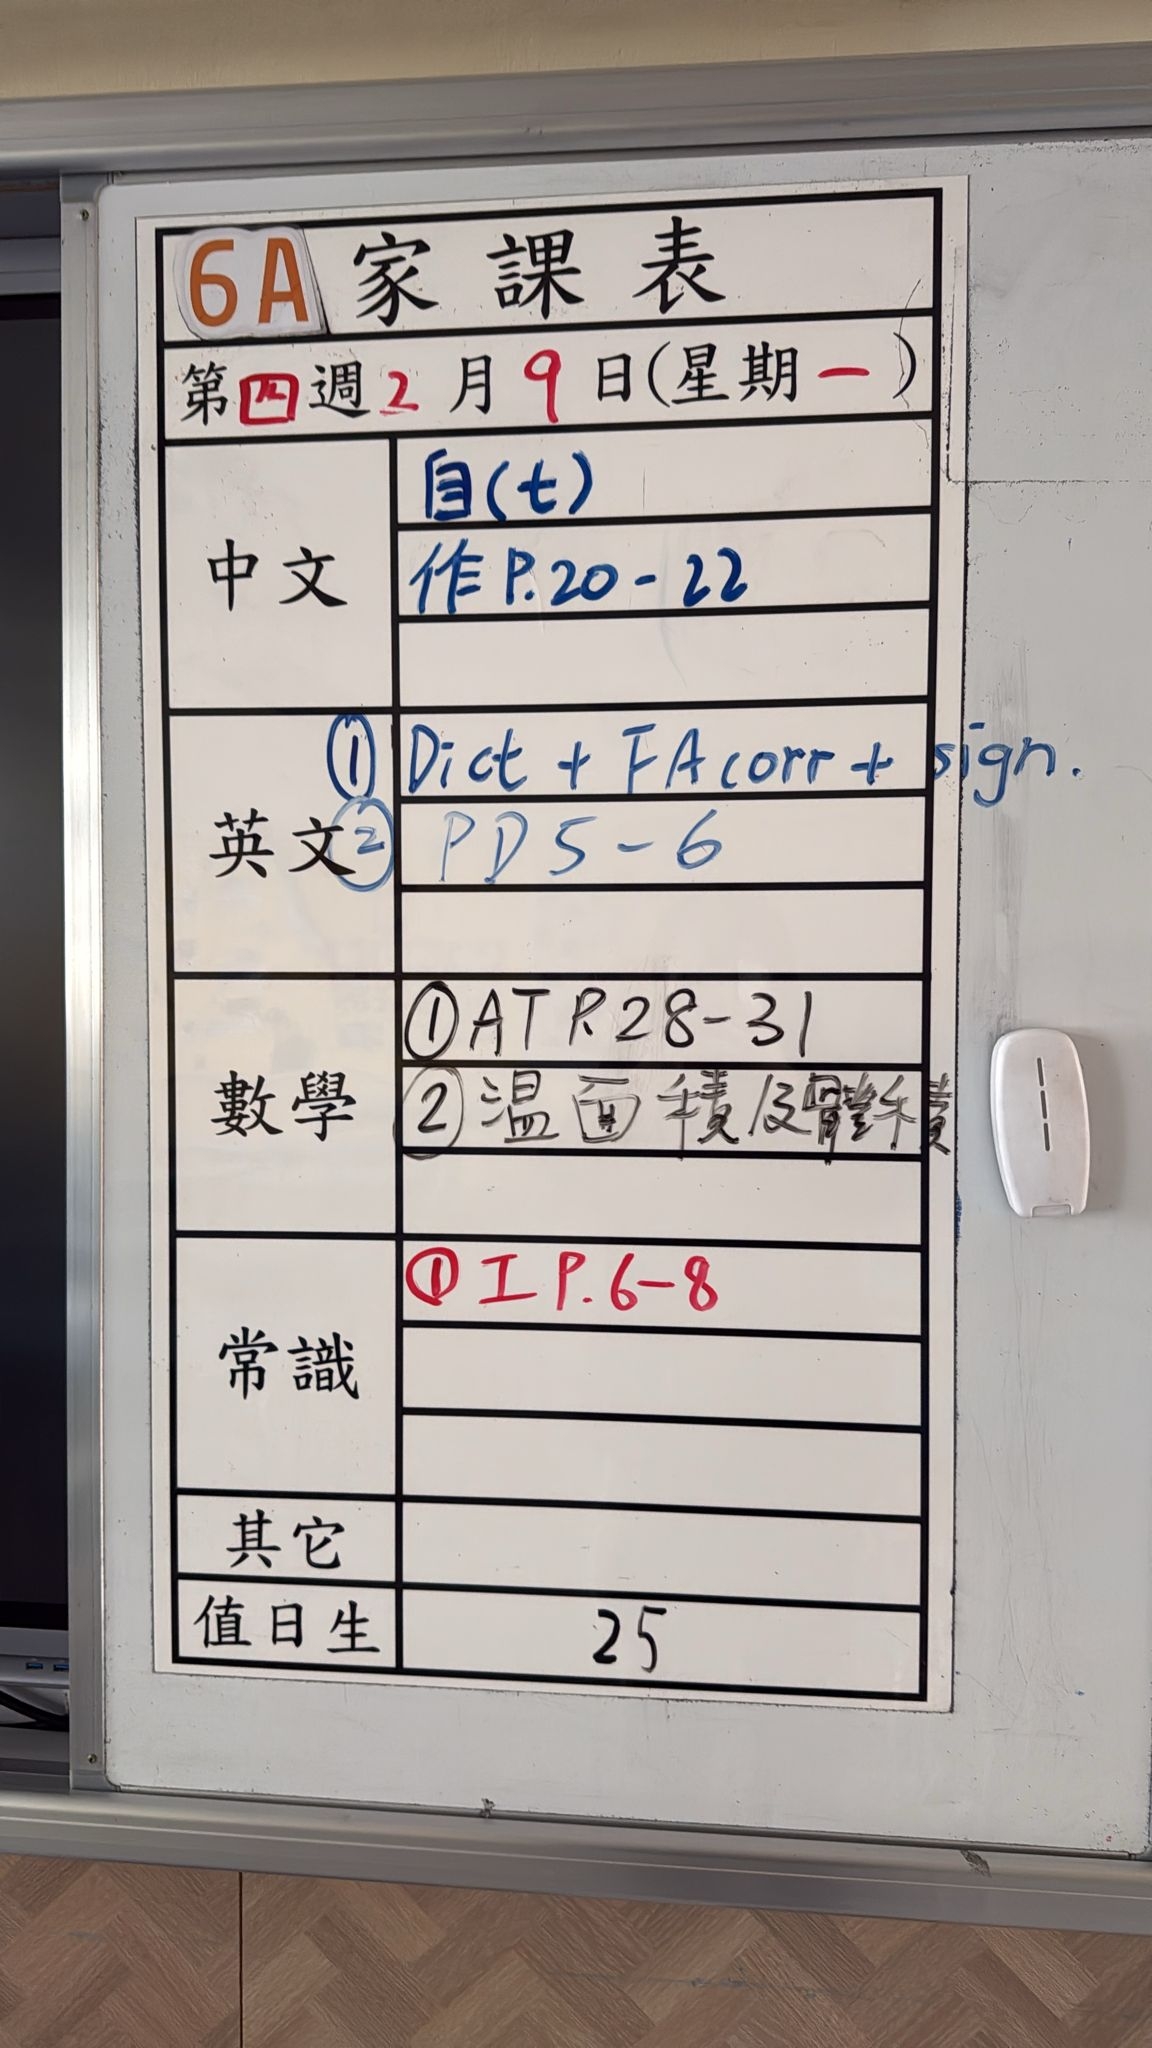 6A 家課表
第四週2月9日(星期一)
中文
自(t)
作P.20-22
英文
① Dict + FA corr + sign.
② PD5-6
數學
①AT P.28-31
②溫面積及體積
常識
①工 P.6-8
其它
值日生
25